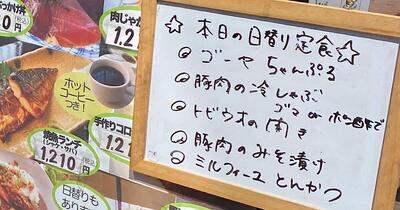 ぶっかけ丼
肉じゃが
1,21
ホット
コーヒー
つき!
焼魚ランチ
(シャケ・サバ)
1,210円(税込)
手作りコロ
1,21
日替りも
☆本日の日替り定食☆
◎ ゴーヤちゃんぷる
◎ 豚肉の冷しゃぶ
ゴマ or ポン酢で
◎ トビウオの開き
◎ 豚肉のみそ漬け
◎ ミルフィーユとんかつ